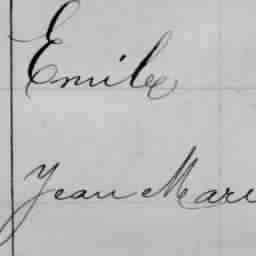 Emile
Jean Marie